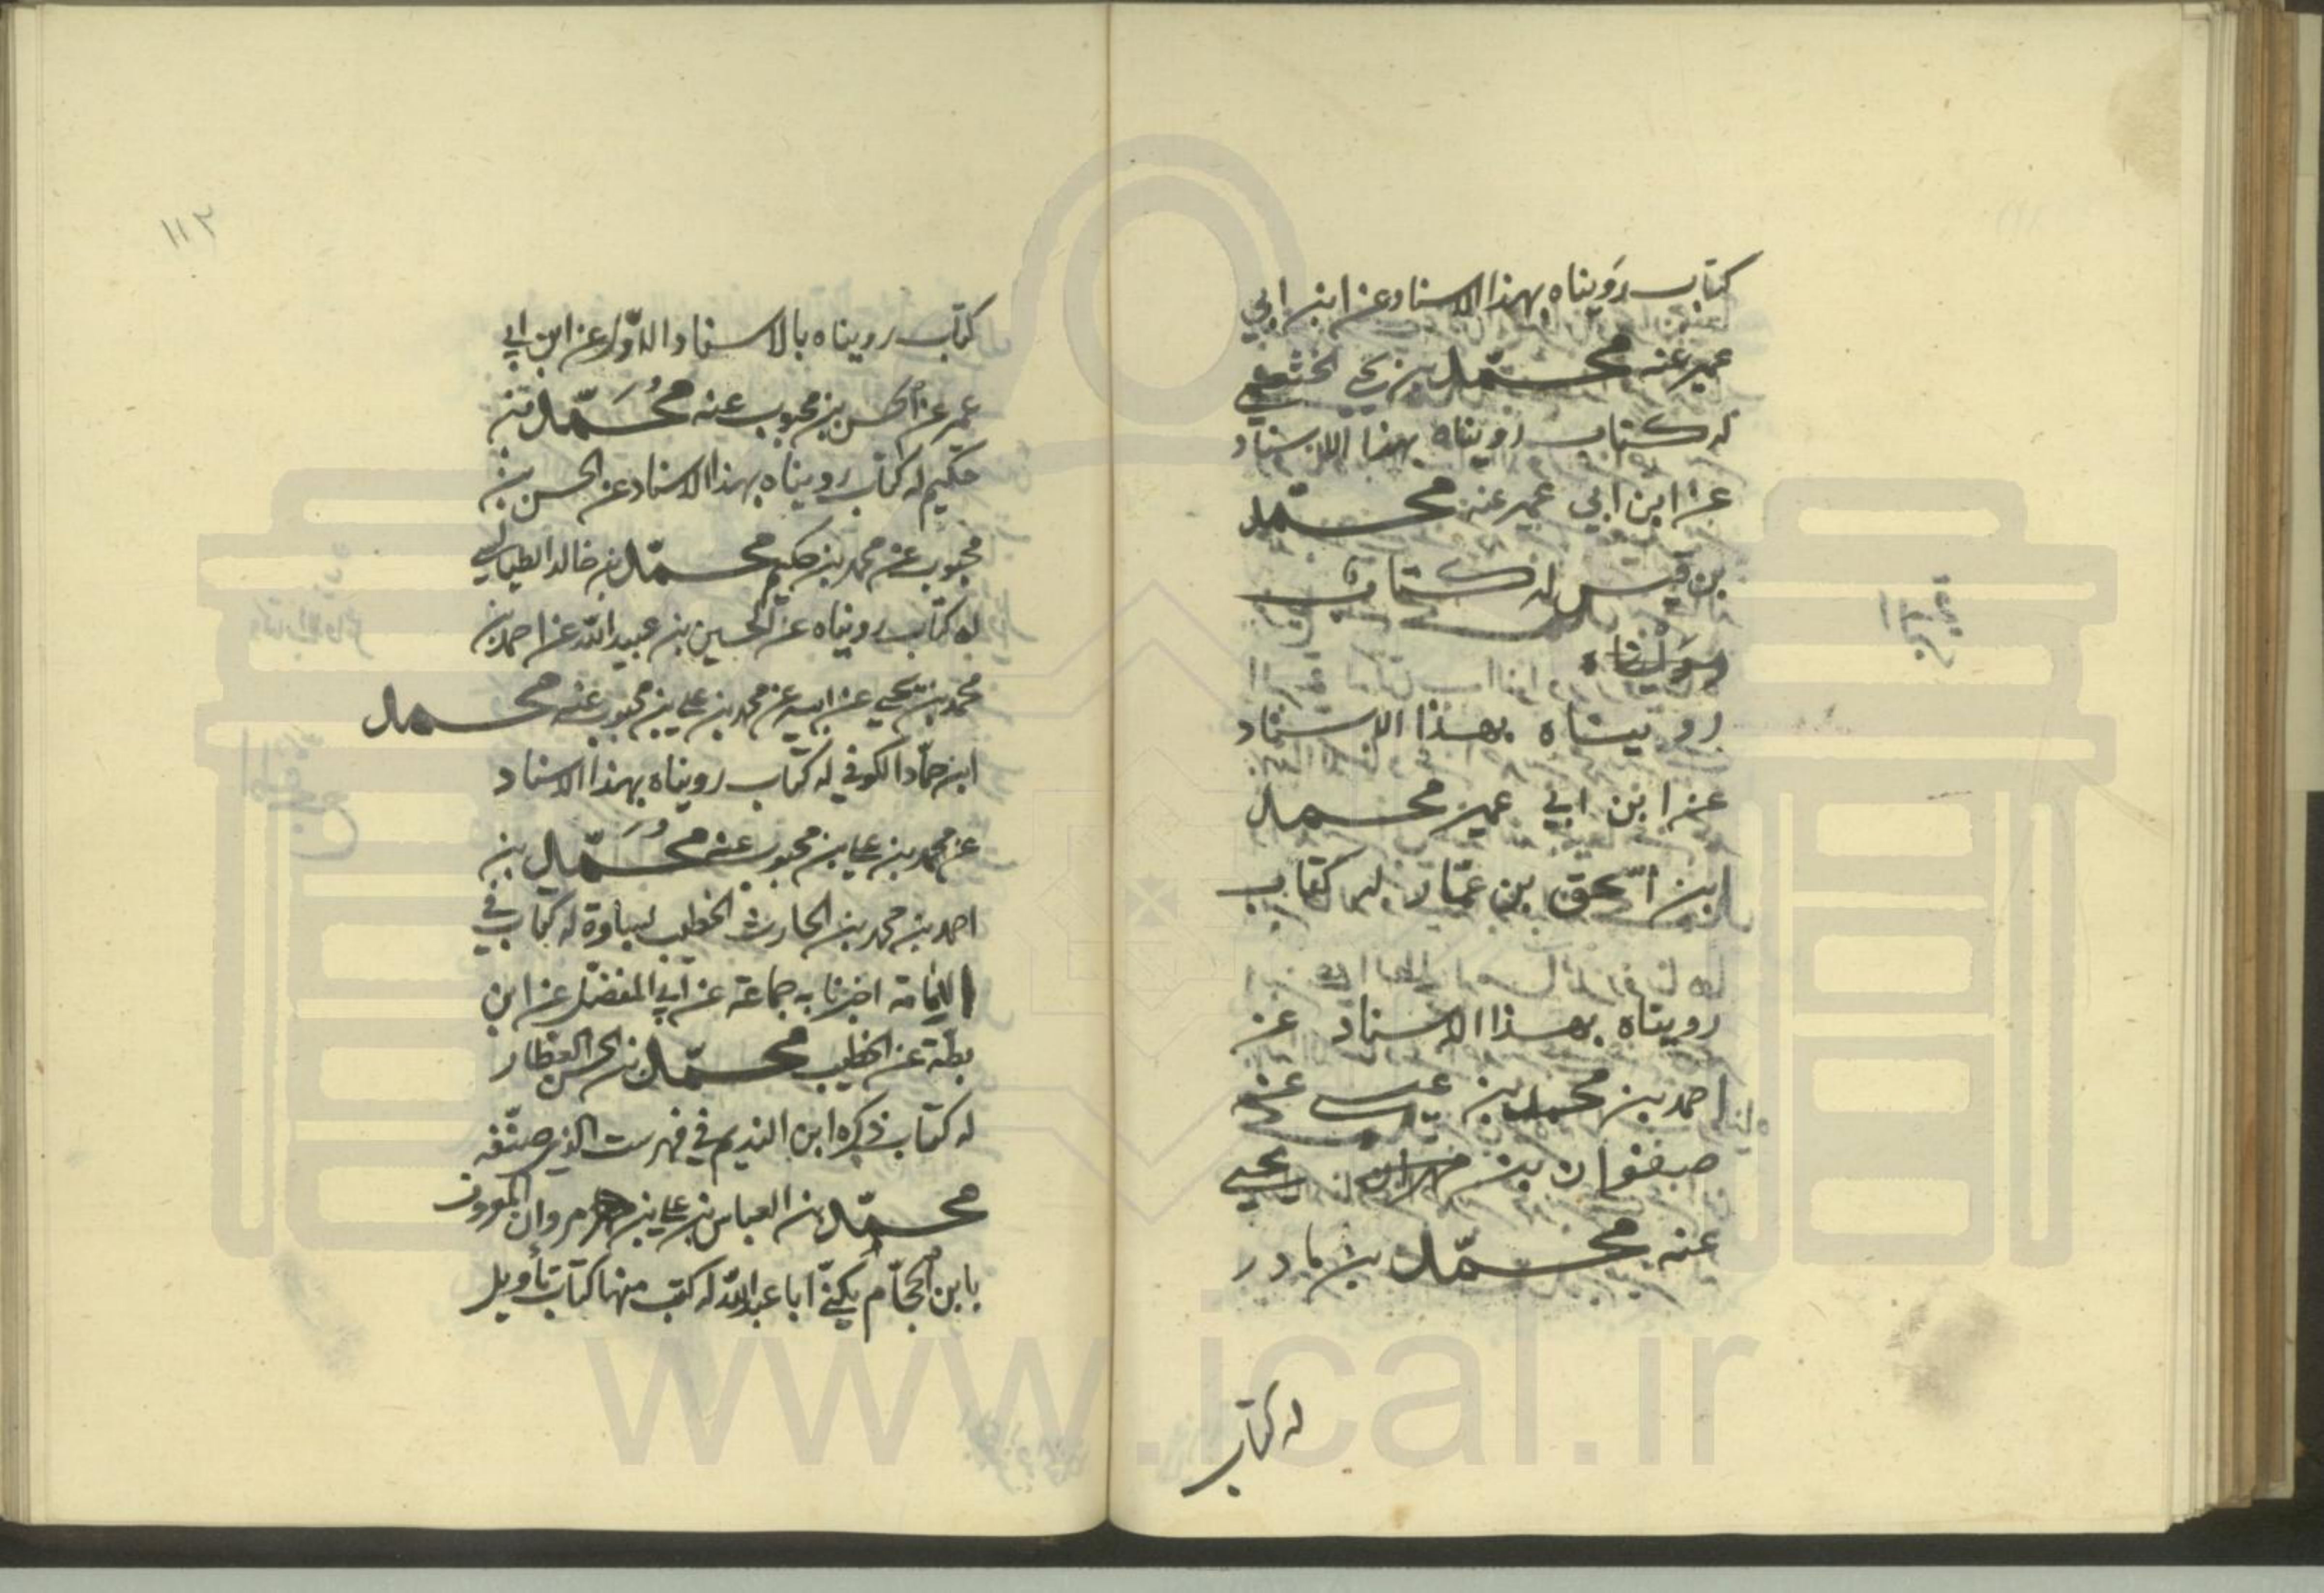 كتاب رويناه بهذا الاسناد عن ابن ابي
عمير عنه محمّد بن يحيى الخثعمي
له كتاب رويناه بهذا الاسناد
عن ابن ابي عمير عنه محمّد
بن قيس له كتاب
رويناه بهذا الاسناد
عن ابن ابي عمير محمد
ابن اسحق بن عمّار له كتاب
رويناه بهذا الاسناد عن
احمد بن محمد بن عيسى عن
صفوان بن يحيى
عنه محمّد بن مادر
له كتاب
١١٢
كتاب رويناه بالاسناد الاوّل عن ابن ابي
عمر عن الحسن بن محبوب عنه مُحَمّد بن
حكيم له كتاب رويناه بهذا الاسناد عن الحسن بن
محبوب عن محمد بن حكيم محمّد بن خالد الطيالسي
له كتاب رويناه عن الحسين بن عبيد الله عن احمد بن
محمد بن يحيى عن ابيه عن محمد بن علي بن محبوب عنه محمد
ابن حمّاد الكوفي له كتاب رويناه بهذا الاسناد
عن محمد بن علي بن محبوب عنه مُحَمّد بن
احمد بن محمد بن الحارث الخطيب بساوة له كتاب في
الامامة اخبرنا به جماعة عن ابي المفضّل عن ابن
بطّة عن الخطيب محمّد بن الحسن العطار
له كتاب ذكره ابن النديم في فهرست الذي صنّفه
محمّد بن العباس بن علي بن مروان المعروف
بابن الحجّام يكنّى ابا عبد الله له كتب منها كتاب تأويل
www.ical.ir